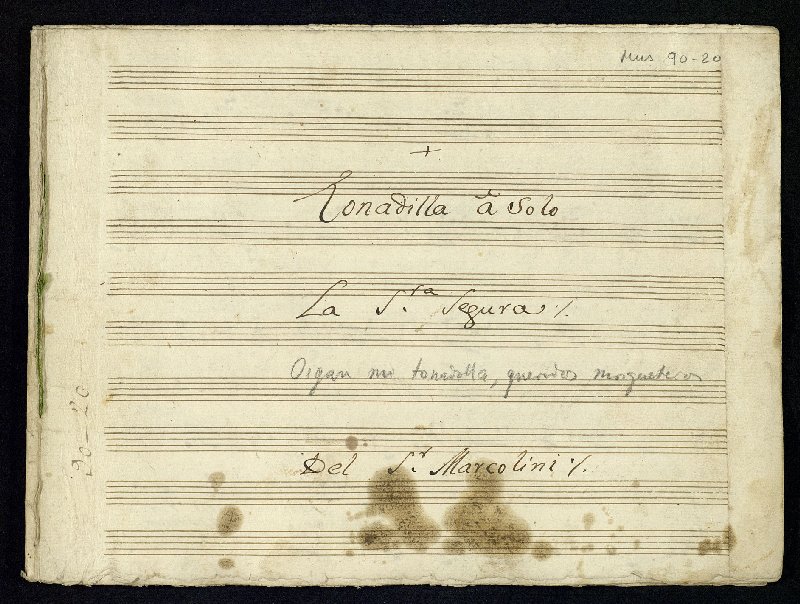 Mus 90-20
+
Tonadilla à Solo
La S.ra Segura %.
Oigan mi tonadilla, queridos mosqueteros
90-20
Del S.r Marcolini %.